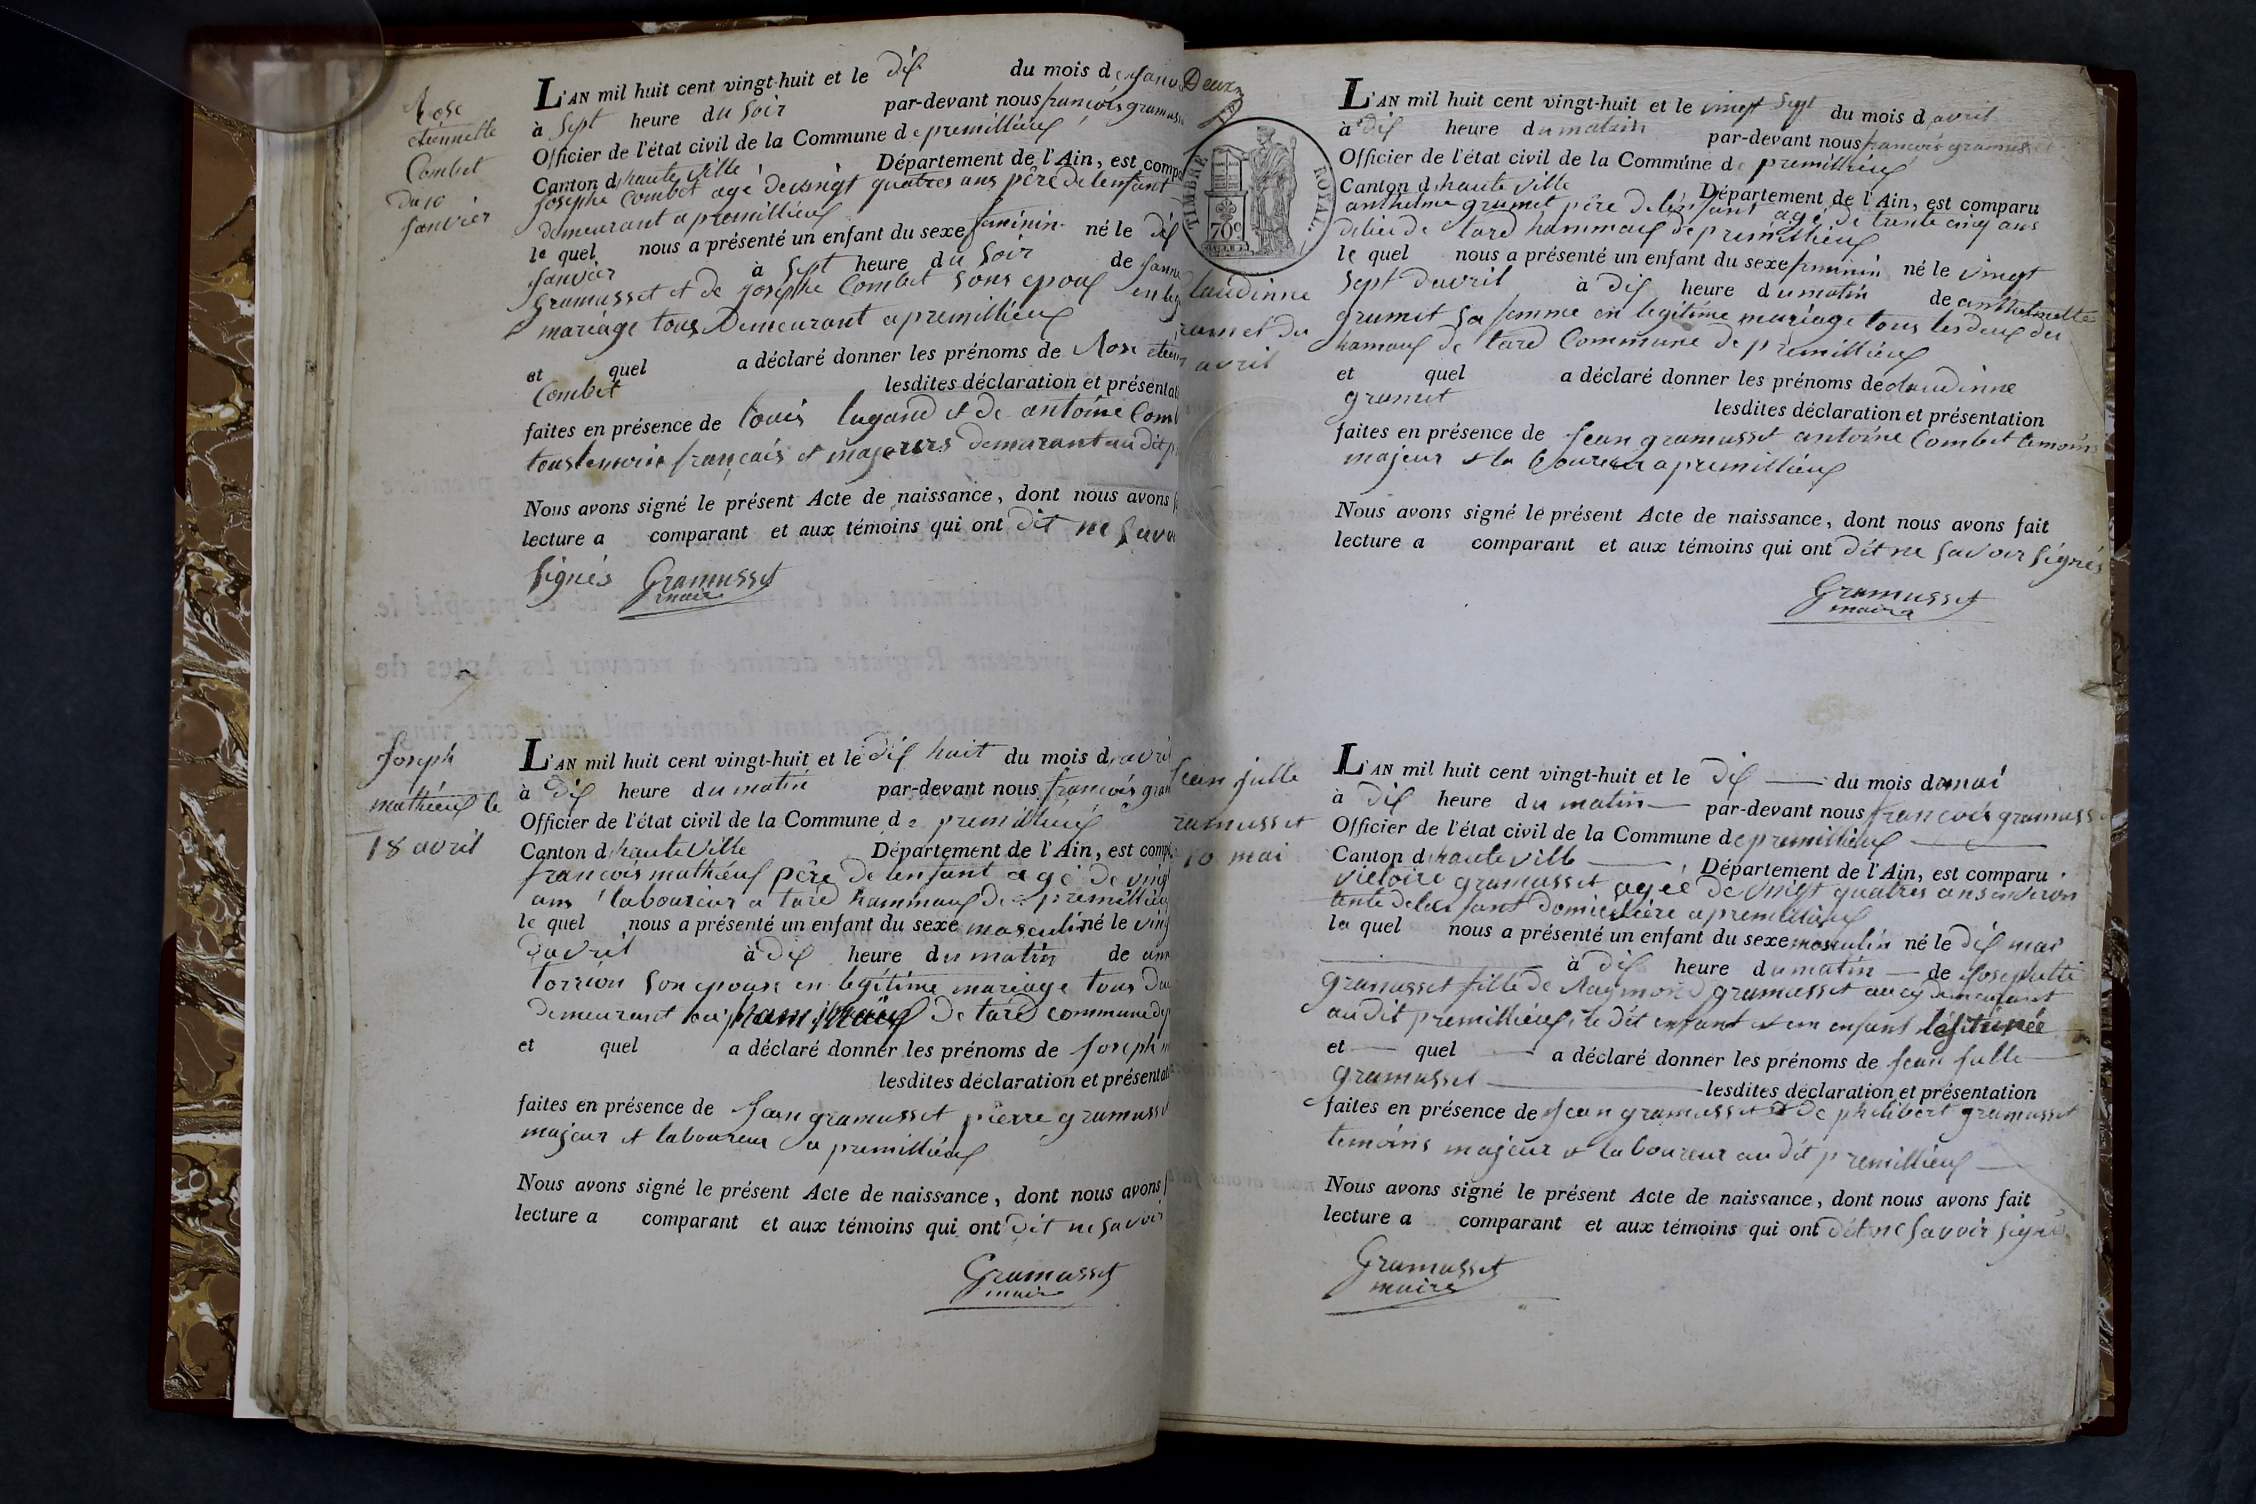 Rose
etiennette
Combet
Du 10
janvier
L'AN mil huit cent vingt-huit et le dix du mois de janv
à sept heure du soir par-devant nous françois gramuss
Officier de l'état civil de la Commune de premillieux
Canton d hauteville Département de l'Ain, est comp
josephe Combet age de vingt quatres ans père de lenfant
demeurant a premillieux
le quel nous a présenté un enfant du sexe feminin né le dix
janvier à sept heure du soir de janne
gramusset et de josephe Combet sons epoux en leg
mariage tous Demeurant a premillieux
et quel a déclaré donner les prénoms de Rose etien
Combet lesdites déclaration et présentati
faites en présence de louis lugand et de antoine Comb
tous temoin français et majeurs demurant au dit p
Nous avons signé le présent Acte de naissance, dont nous avons f
lecture a comparant et aux témoins qui ont dit ne savo
signés Gramusset
maire
Joseph
mathieux le
18 avril
L'AN mil huit cent vingt-huit et le dix huit du mois d avril
à dix heure du matin par-devant nous françois gram
Officier de l'état civil de la Commune de premillieux
Canton d hauteville Département de l'Ain, est comp
francois mathieux père de lenfant age de vingt
ans laboureur a tard hammaux de premillieux
le quel nous a présenté un enfant du sexe masculin né le ving
d'avril à dix heure du matin de ann
torrion son epouse en legitime mariage tous deu
demeurant au hammaux de tard commune de p
et quel a déclaré donner les prénoms de joseph m
lesdites déclaration et présentati
faites en présence de jean gramusset pierre gramusset
majeur et laboureur a premillieux
Nous avons signé le présent Acte de naissance, dont nous avons f
lecture a comparant et aux témoins qui ont dit ne savoir
Gramusset
maire
Deux
TIMBRE ROYAL.
70c
laudinne
ramet du
avril
L'AN mil huit cent vingt-huit et le vingt sept du mois d avril
à dix heure du matin par-devant nous francois gramusset
Officier de l'état civil de la Commune de premillieux
Canton d hauteville Département de l'Ain, est comparu
anthelme grumet père de lenfant agé de trente cinq ans
du lieu de tard hammaux de premillieux
le quel nous a présenté un enfant du sexe feminin né le vingt
sept d'avril à dix heure du matin de anthelmette
grumet sa femme en legitime mariage tous les deux du
hamaux de tard Commune de premillieux
et quel a déclaré donner les prénoms de claudinne
grumet lesdites déclaration et présentation
faites en présence de jean gramusset antoine Combet temoins
majeur et laboureur a premillieux
Nous avons signé le présent Acte de naissance, dont nous avons fait
lecture a comparant et aux témoins qui ont dit ne savoir signés
Gramusset
maire
jean julle
ramusset
10 mai
L'AN mil huit cent vingt-huit et le dix du mois de mai
à dix heure du matin par-devant nous francois gramusse
Officier de l'état civil de la Commune de premillieux
Canton d hauteville Département de l'Ain, est comparu
victoire gramusset agée de vingt quatres ans environ
tente de lenfant domicilière a premillieux
la quel nous a présenté un enfant du sexe masculin né le dix mai
à dix heure du matin de josephette
gramusset fille de Raymond gramusset au cy demeurant
au dit premillieux, le dit enfant et un enfant
et quel a déclaré donner les prénoms de jean julle
gramusset lesdites déclaration et présentation
faites en présence de jean gramusset et de philibert gramusset
temoins majeur et laboureur au dit premillieux
Nous avons signé le présent Acte de naissance, dont nous avons fait
lecture a comparant et aux témoins qui ont dit ne savoir signé
Gramusset
maire